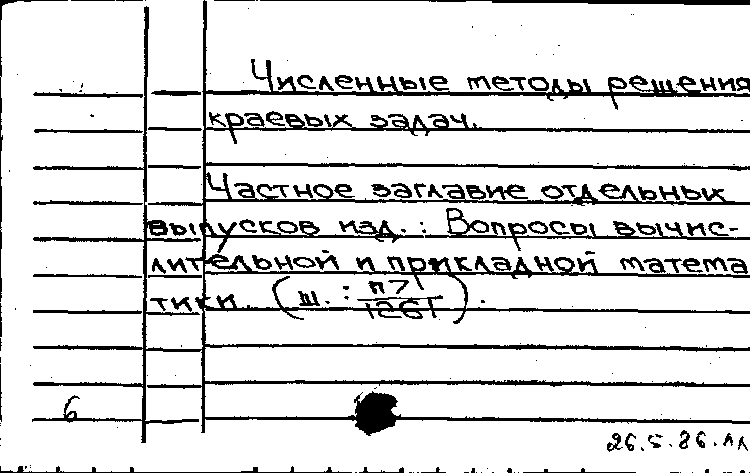 Численные методы решения
краевых задач.
Частное заглавие отдельных
выпусков изд.: Вопросы вычис-
лительной и прикладной матема
тики. (ш.: п71/1261).
6
26.5.86.